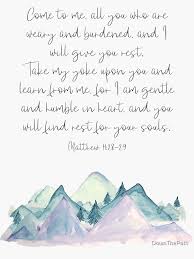 Come to me, all you who are
weary and burdened, and I
will give you rest.
Take my yoke upon you and
learn from me, for I am gentle
and humble in heart, and you
will find rest for your souls.
Matthew 11:28-29
DownThePath